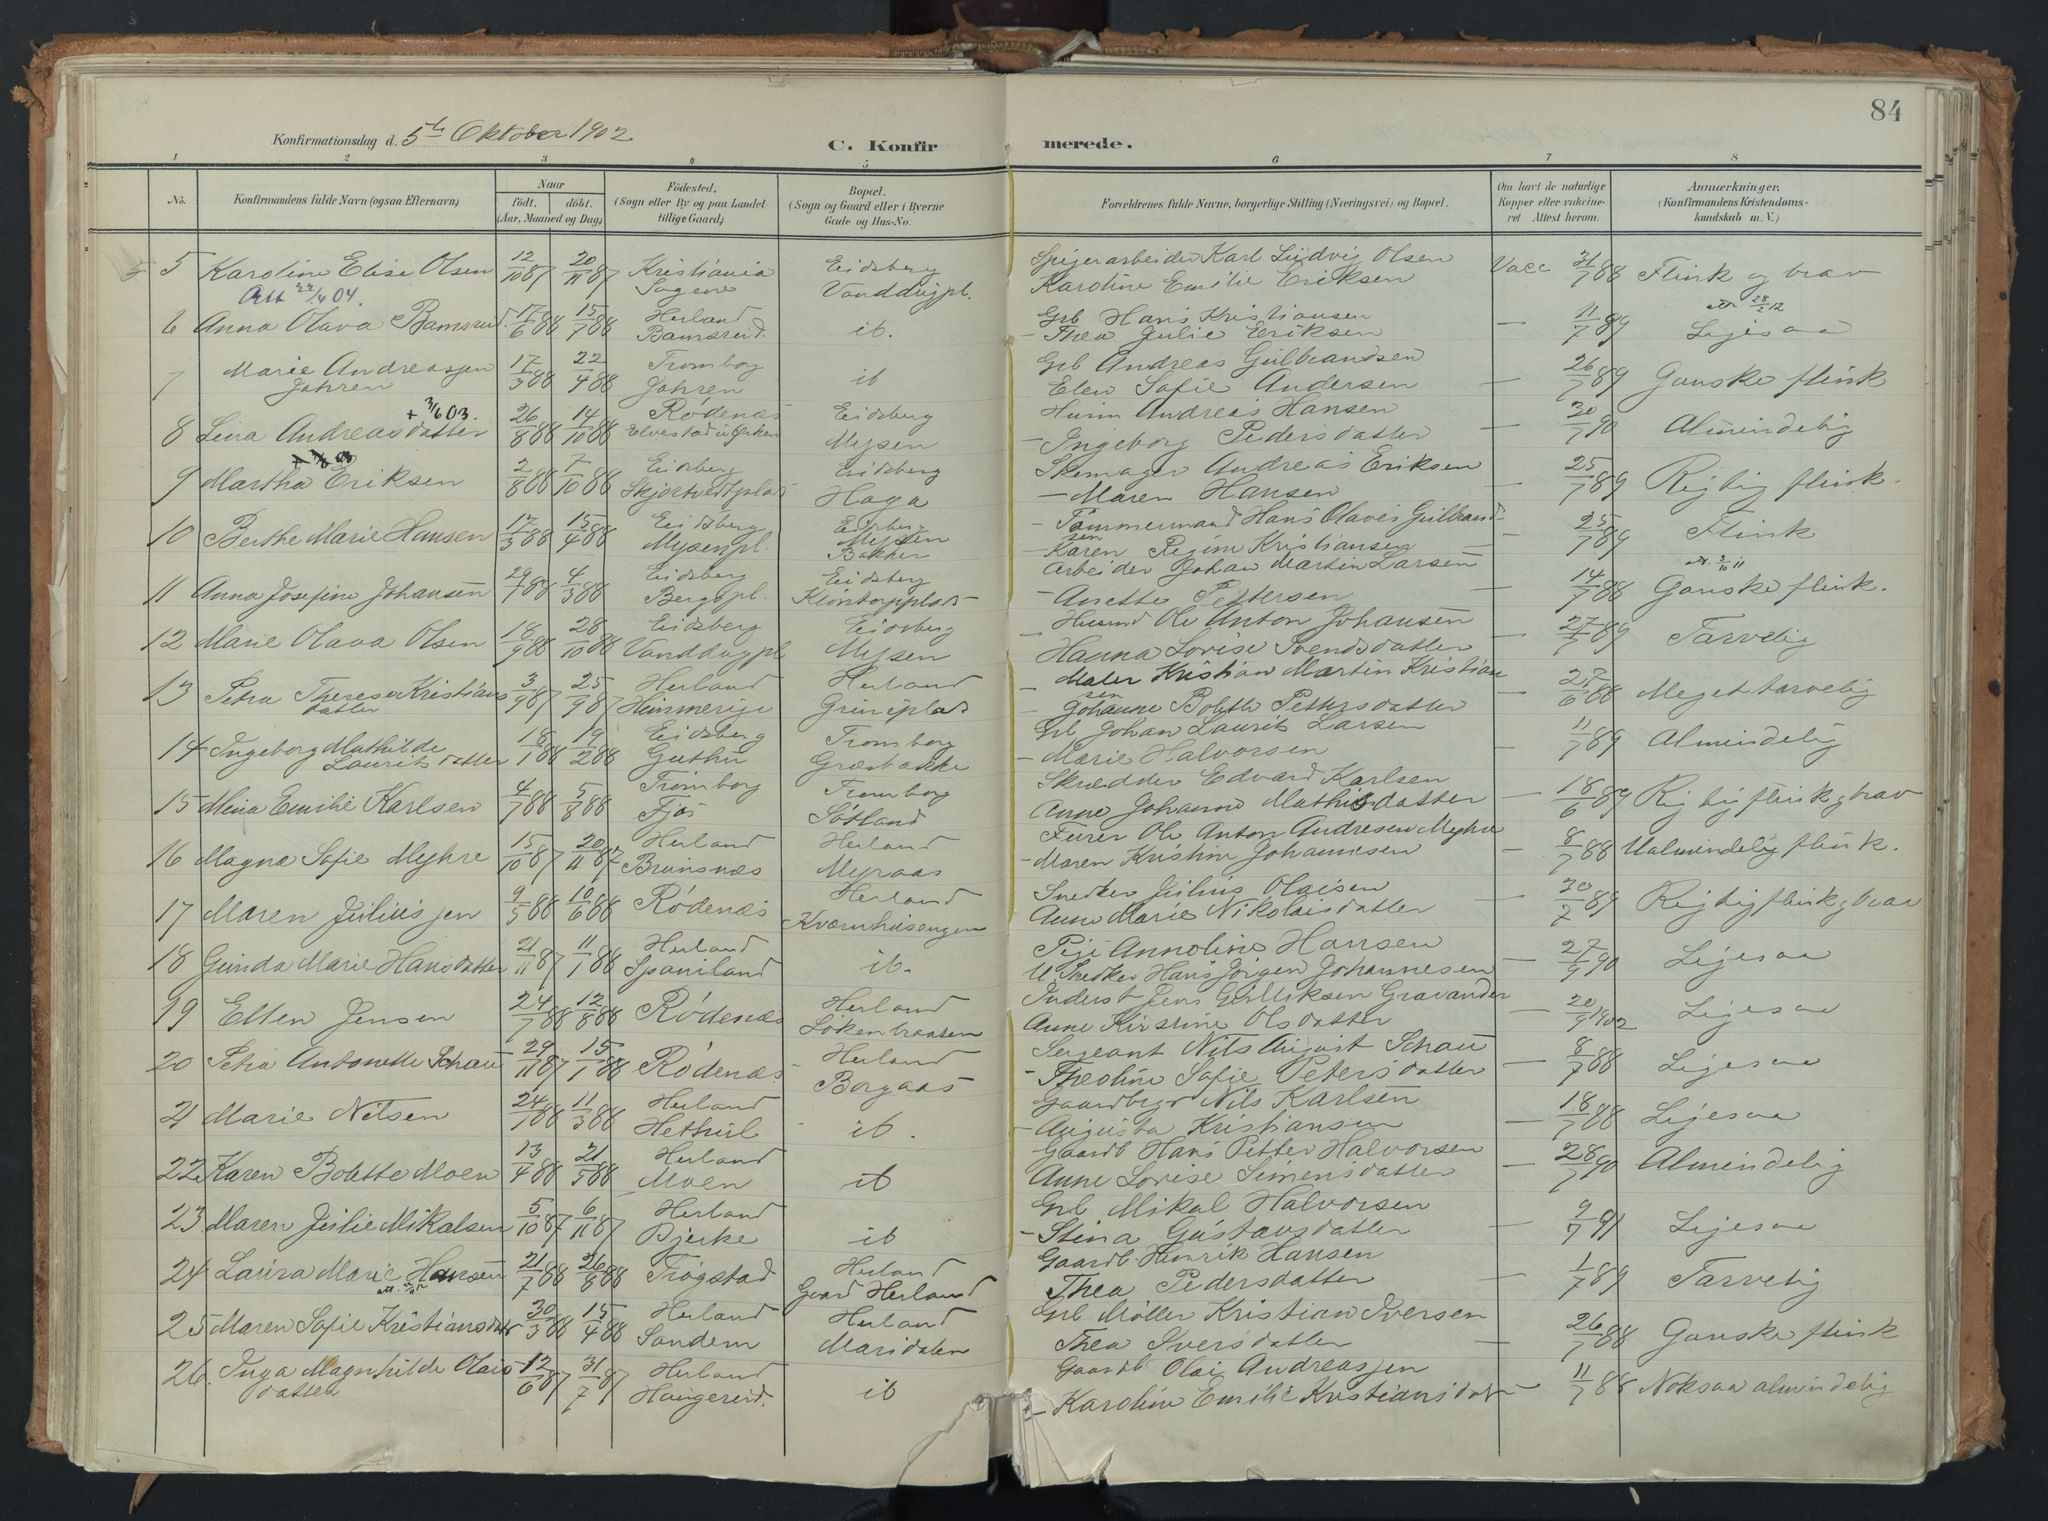 84
Konfirmationsdag d. 5te Oktober 1902
C. Konfirmerede.
1 2 3 4 5 6 7 8
No.
Konfirmandens fulde Navn (ogsaa Efternavn)
Naar
födt. döbt.
(Aar, Maaned og Dag)
Födested.
(Sogn eller By og paa Landet
tillige Gaard)
Bopæl.
(Sogn og Gaard eller i Byerne
Gade og Hus-No.
Forældrenes fulde Navne, borgerlige Stilling (Næringsvei) og Bopæl.
Om havt de naturlige
Kopper eller vakcine-
ret Attest herom.
Anmærkninger.
(Konfirmandens Kristendoms-
kundskab m. V.)
5 Karoline Elise Olsen 12/10 87 20/11 87 Kristiania Sagene Eidsberg Vanddugpl. Spigerarbeider Karl Ludvig Olsen
Karoline Emilie Eriksen Vacc 31/7 88 Flink og brav
Att 22/4 04.
6 Anna Olava Bamsrud. 17/6 88 15/7 88 Herland Bamsrud. ib. Grb Hans Kristiansen
Thea Julie Eriksen — 11/7 89 Ligesaa
att. 28/2 12
7 Marie Andreassen Jahren 17/3 88 22/4 88 Tromborg Jahren ib Grb Andreas Gulbrandsen
Elen Sofie Andersen — 26/7 89 Ganske flink
8 Lina Andreasdatter + 3/6 03. 26/8 88 14/10 88 Rødenæs Eidsberg Mysen Husm Andreas Hansen
Ingeborg Pedersdatter — 20/7 90 Almindelig
9 Martha Eriksen 2/8 88 7/10 88 Eidsberg Skjortvedtplads Eidsberg Haga Skomager Andreas Eriksen
Maren Hansen — 25/7 89 Rigtig flink.
10 Berthe Marie Hansen 17/3 88 15/4 88 Eidsberg Mysenpl. Eidsberg Mysen Bakken Tømmermand Hans Olaves Gulbrandsen
Karen Regine Kristiansen — 25/7 89 Flink
11 Anna Josefine Johansen 29/1 88 4/3 88 Eidsberg Bergspl. Eidsberg Arbeider Johan Martin Larsen
Anette Pettersen — 14/7 88 Ganske flink.
12 Marie Olava Olsen 18/9 88 28/10 88 Eidsberg Vanddugpl Eidsberg Mysen Husmd Ole Anton Johansen
Hanna Lovise Svendsdatter — 27/7 89 Tarvelig
13 Petra Therese Kristiansdatter 3/9 87 25/9 87 Herland Herland Maler Kristian Martin Kristiansen
Johanne Bolette Pettersdatter — 25/6 88 Meget tarvelig
14 Ingeborg Mathilde Lauritsdatter 18/1 88 19/2 88 Eidsberg Guthu Tromborg Græsbakke Grb Johan Laurits Larsen
Marie Halvorsen — 11/7 89 Almindelig
15 Mina Emilie Karlsen 4/7 88 5/8 88 Tromborg Fjøs Tromborg Søtland Skrædder Edvard Karlsen
Anne Johanne Mathisdatter — 18/6 89 Rigtig flink g brav
16 Magna Sofie Myhre 15/10 87 20/11 87 Herland Brunsnæs Herland Myraas Furer Ole Anton Andresen Myhre
Maren Kristine Johannesen — 8/7 88 Ualmindelig flink.
17 Maren Juliussen 9/5 88 10/6 88 Rødenæs Herland Kværnhusengen Snedker Julius Olaisen
Anne Marie Nikolaisdatter — 20/7 89 Rigtig flink g brav
18 Gunda Marie Hansdatter 21/11 87 11/1 88 Herland Spaniland ib. Pige Annoline Hansen
U. Snedker Hans Jørgen Johannesen — 27/9 90 Ligesaa
19 Ellen Jensen 24/7 88 12/8 88 Rødenæs Herland Løkenbraaten Inderst Jens Gulliksen Gravander
Anne Kirstine Olsdatter — 20/9 1902 Ligesaa
20 Petra Antonette Schau 29/11 87 15/1 88 Rødenæs Herland Borgaas Sergeant Nils August Schau
Theoline Sofie Petersdatter — 8/7 88 Ligesaa
21 Marie Nilsen 24/1 88 11/3 88 Herland Hethul ib. Gaardbrgr Nils Karlsen
Augusta Kristiansen — 18/7 88 Ligesaa
22 Karen Bolette Moen 13/4 88 21/5 88 Herland Moen ib Gaardb Hans Petter Halvorsen
Anne Lovise Simensdatter — 28/7 90 Almindelig
23 Maren Julie Mikalsen 5/10 87 6/11 87 Herland Bjerke ib Grb Mikal Halvorsen
Stina Gustavsdatter — 9/7 91 Ligesaa
24 Laura Marie Hansen 21/7 88 26/8 88 Trøgstad Herland Gaard Herland Gaardb. Henrik Hansen
Thea Pedersdatter — 1/7 89 Tarvelig
25 Maren Sofie Kristiansdatr 30/3 88 15/4 88 Herland Sandem Herland Marisdalen Grb Møller Kristian Iversen
Thea Iversdatter — 26/7 88 Ganske flink
26. Inga Magnhilde Olaisdatter 12/6 87 31/7 87 Herland Haugerud. ib Gaardb Olai Andreassen
Karoline Emilie Kristiansdatr — 11/7 88 Noksaa almindelig